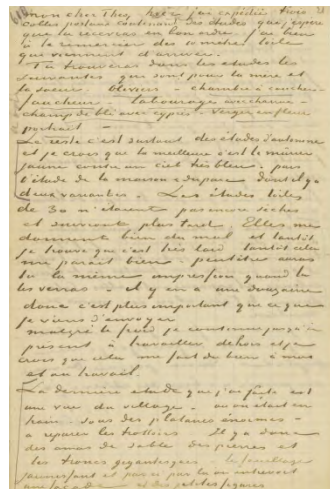 mon cher Theo, hier j'ai expédié trois
colis postaux contenant des études que j'espère
que tu recevras en bon ordre. j'ai bien
à te remercier de toile
qui viennent d'arriver.
Tu trouveras dans les études les
suivantes qui sont pour la mère et
la soeur. oliviers - chambre à coucher -
faucheur - labourage avec charrue -
champ de blé avec cyprès - verger en fleur
portrait -
Le reste c'est surtout des études d'automne
et je crois que la meilleure c'est le mûrier
jaune contre un ciel très bleu. puis
l'étude de la maison et du parc dont il y a
deux variantes. Les études toiles
de 30 n'étaient pas encore sèches
et suivront plus tard. Elles me
donnent bien du mal et tantôt
je trouve que c'est très laid tantôt cela
me parait bien. peutêtre auras
tu la même impression quand tu
les verras. il y en a une douzaine
donc c'est plus important que ce que
je viens d'envoyer
malgré le froid je continue jusqu'à
présent à travailler dehors et je
crois que cela me fait du bien à moi
et au travail.
La dernière étude que j'ai faite est
une vue du village - où on était en
train - sous des platanes énormes -
à réparer les trottoirs. Il y a donc
des amas de sable des pierres et
les troncs gigantesques - le feuillage
jaunissant et par ci par là on entrevoit
une façade et des petites figures